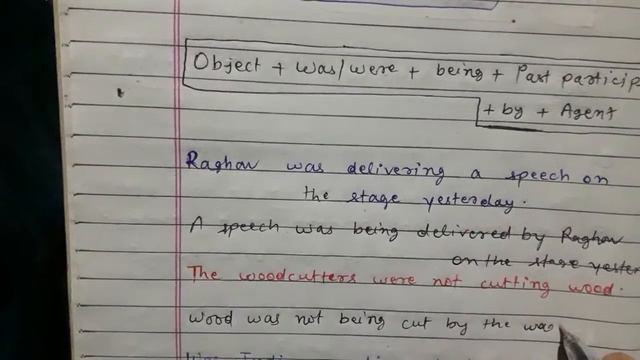 Object + was/were + being + Past particip
+ by + Agent
Raghav was delivering a speech on
the stage yesterday.
A speech was being delivered by Raghav
on the stage yester
The woodcutters were not cutting wood.
wood was not being cut by the woo